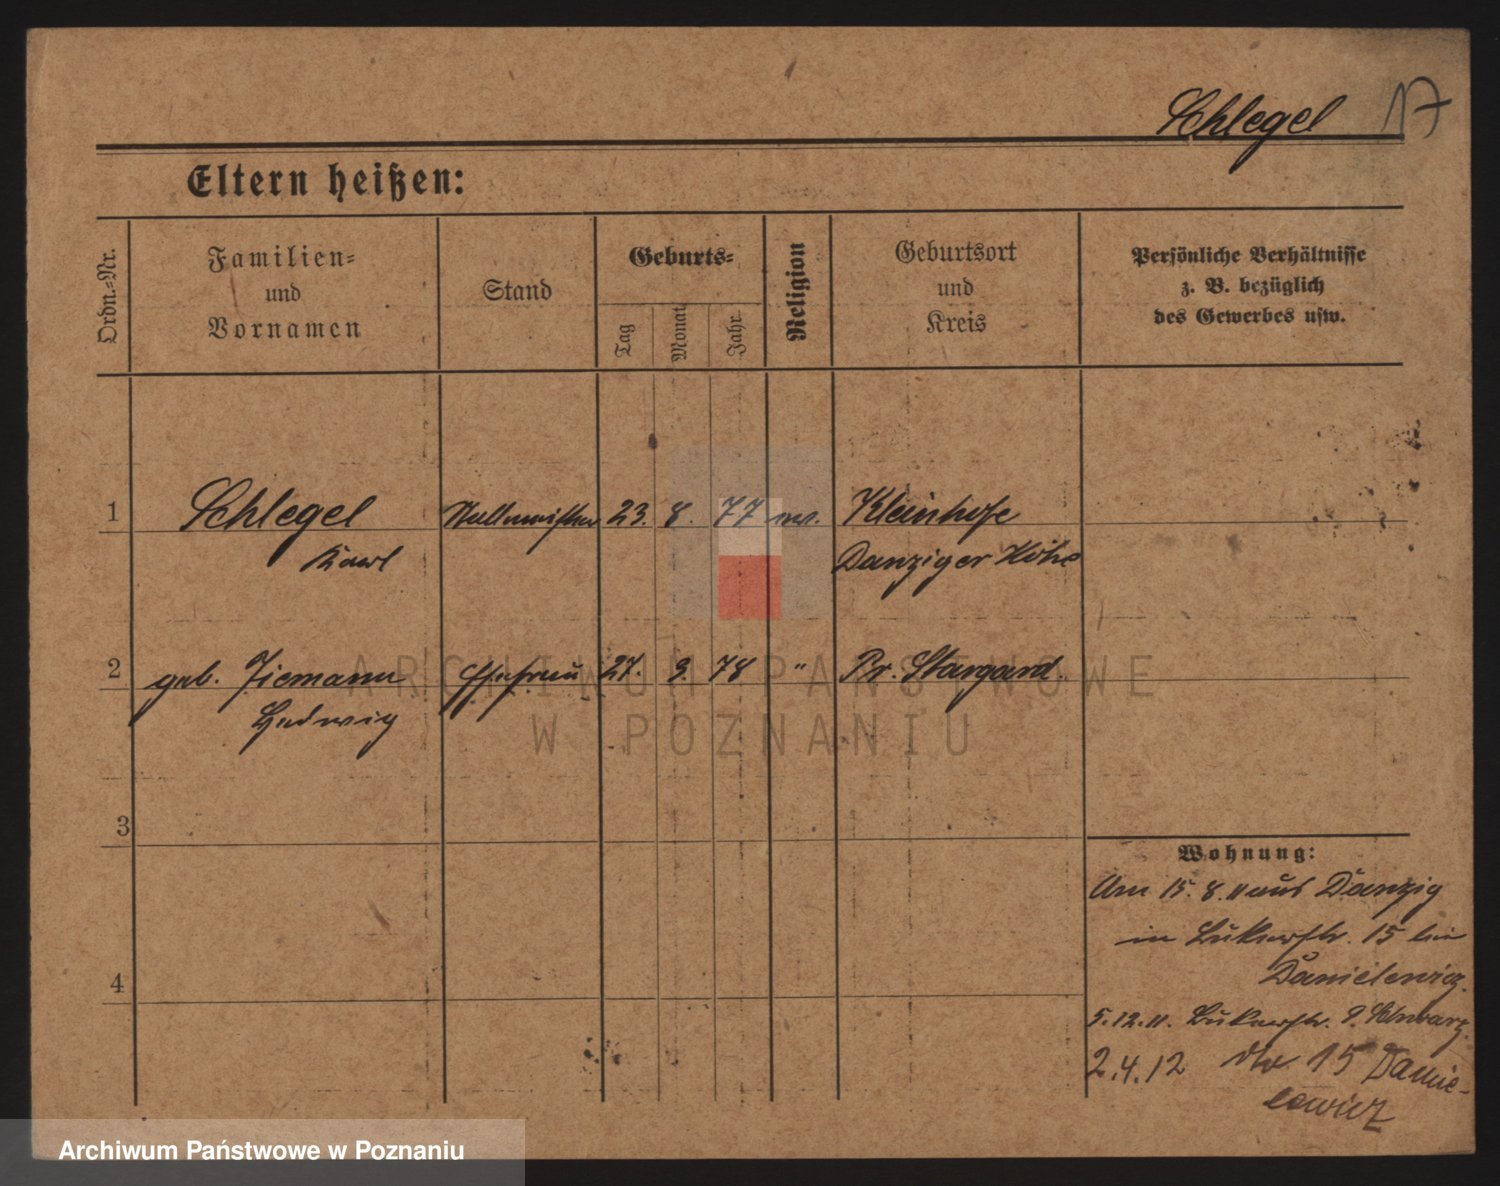 Schlegel 17
Eltern heißen:
Ordn.-Nr.
Familien-
und
Vornamen
Stand
Geburts-
Tag
Monat
Jahr
Religion
Geburtsort
und
Kreis
Persönliche Verhältnisse
z. B. bezüglich
des Gewerbes usw.
1 Schlegel 23. 8. 77 ev. Kleinhofe
Karl Danziger Höhe
2 geb. Ziemann Ehefrau 27. 9. 78 " Pr. Stargard.
Hedwig
3
4
Wohnung:
Am 15. 8. 11 aus Danzig
in 15 bei
Danielewicz.
5.12.11. Schwarz.
2.4.12 15 Danie-
lewicz
ARCHIWUM PAŃSTWOWE
W POZNANIU
Archiwum Państwowe w Poznaniu